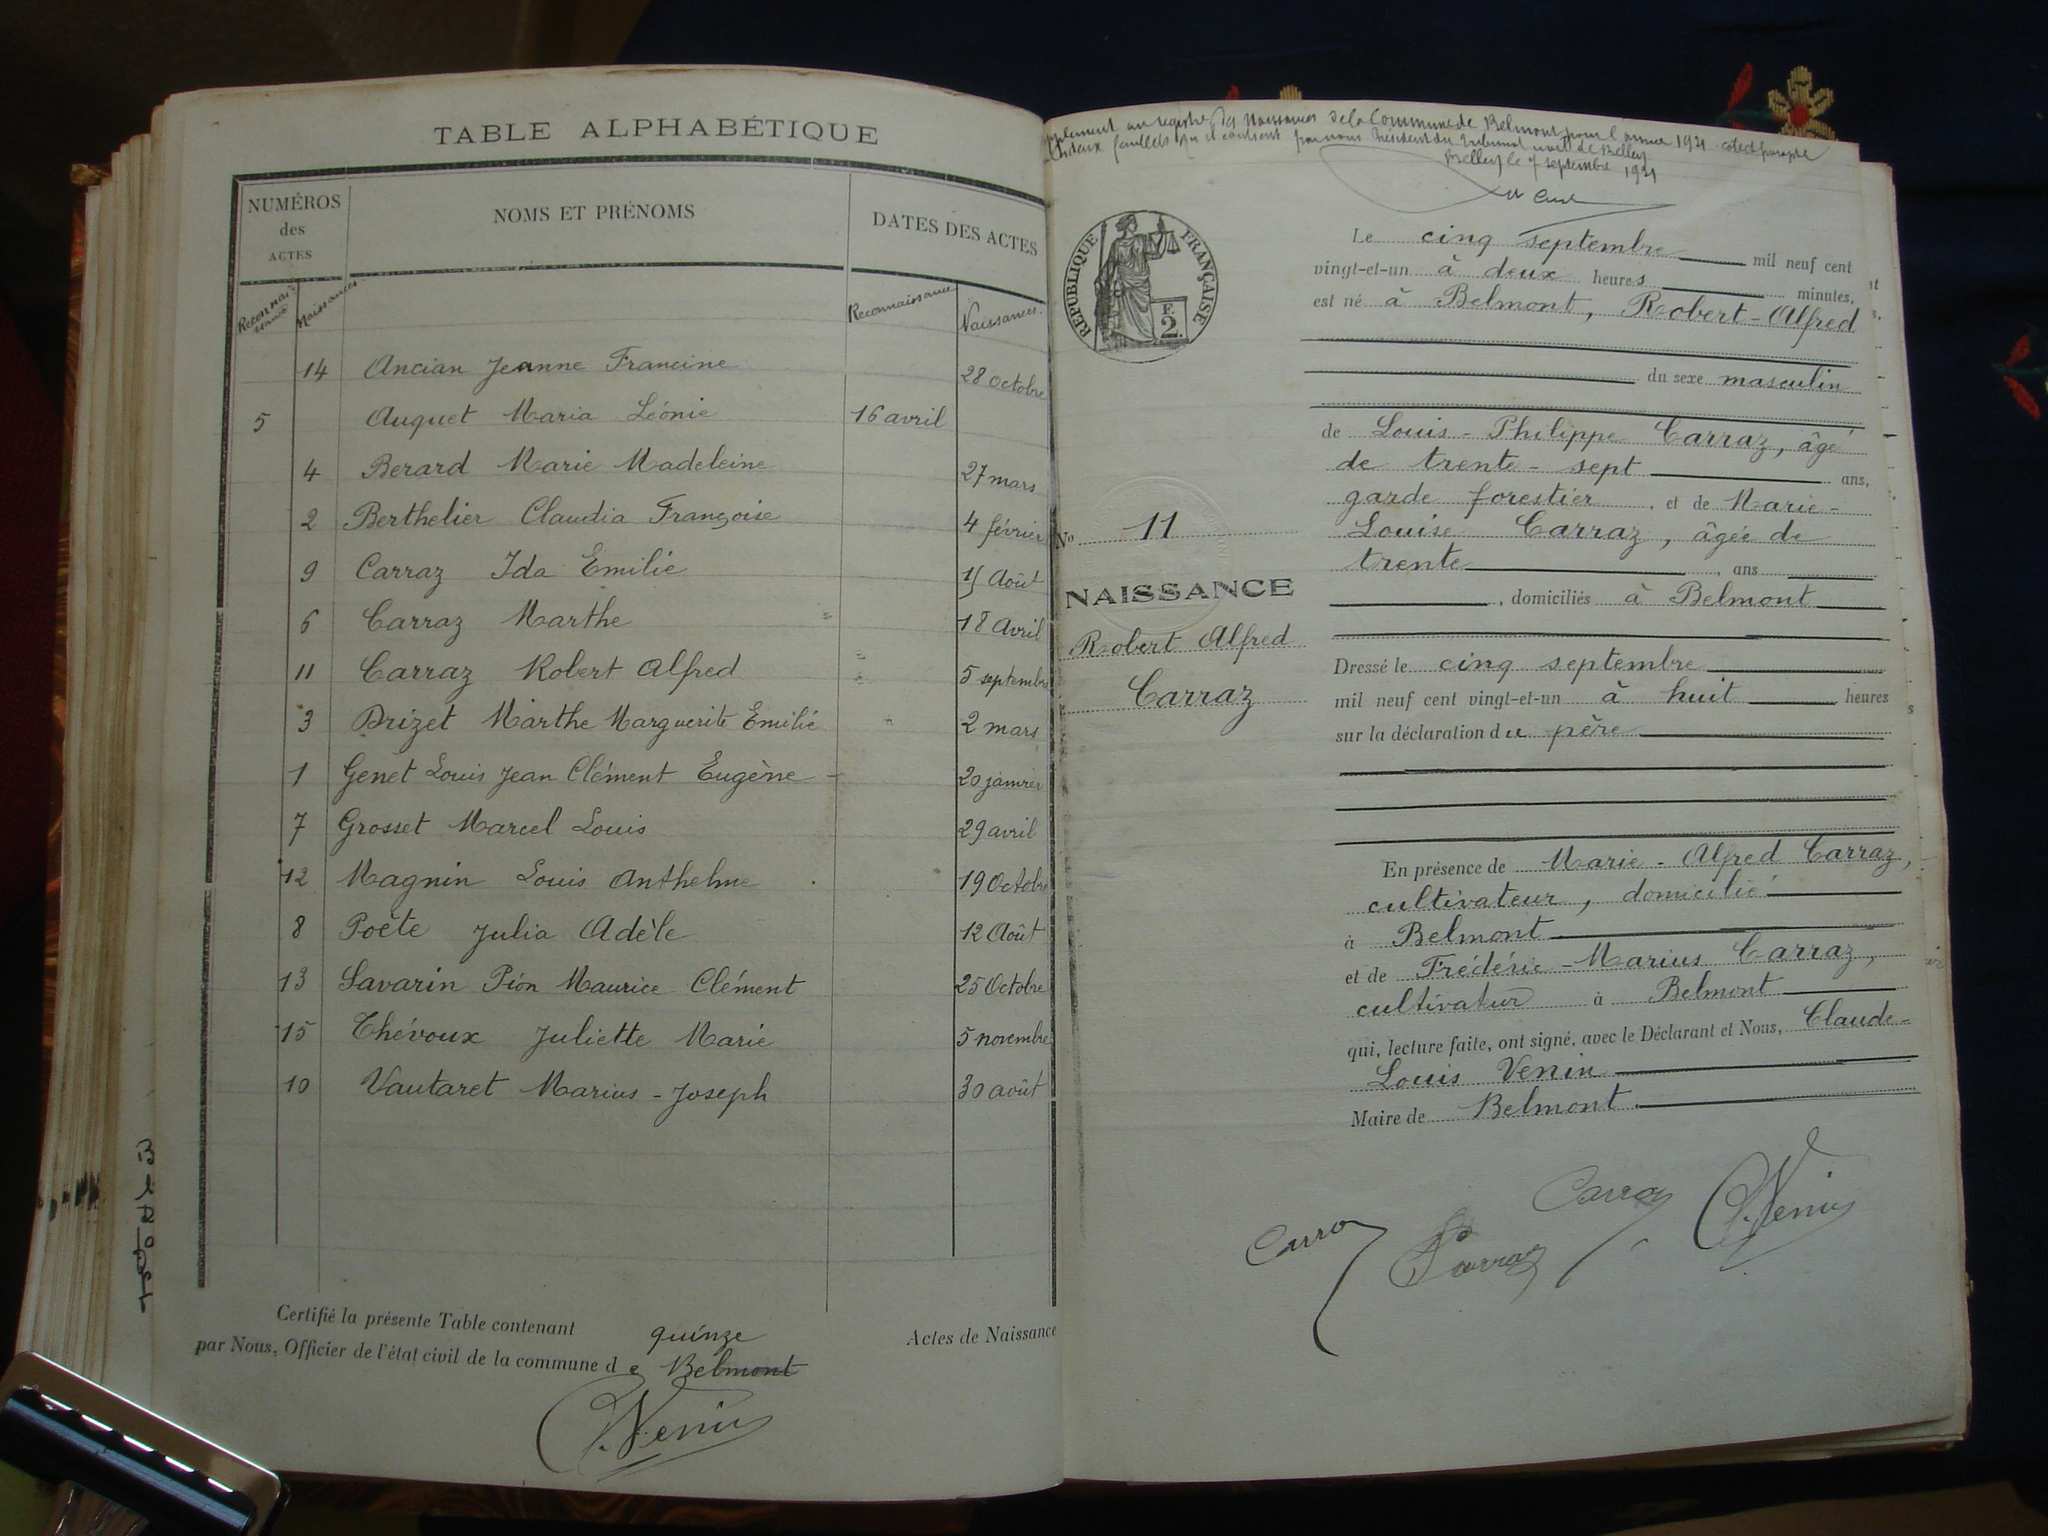 TABLE ALPHABÉTIQUE
NUMÉROS des ACTES
NOMS ET PRÉNOMS
DATES DES ACTES
Reconnaissance Naissances Reconnaissance Naissances
14 Ancian Jeanne Francine 28 octobre
5 Auquet Maria Léonie 16 avril
4 Berard Marie Madeleine 27 mars
2 Berthelier Claudia Françoise 4 février
9 Carraz Ida Emilie 15 Août
6 Carraz Marthe 18 Avril
11 Carraz Robert Alfred 5 septembre
3 Drizet Marthe Marguerite Emilie 2 mars
1 Genet Louis Jean Clément Eugène 20 janvier
7 Grosset Marcel Louis 29 avril
12 Magnin Louis Anthelme 19 Octobre
8 Poëte Julia Adèle 12 Août
13 Savarin Pion Maurice Clément 25 Octobre
15 Thévoux Juliette Marie 5 novembre
10 Vautaret Marius-Joseph 30 août
Certifié la présente Table contenant quinze Actes de Naissance
par Nous, Officier de l'état civil de la commune de Belmont
C. Venin
registre des Naissances de la Commune de Belmont pour l'année 1921 coté et paraphé
deux feuillets par nous Président du Tribunal civil de Belley
Belley le 7 septembre 1921
RÉPUBLIQUE FRANÇAISE
E. 2
Le cinq septembre mil neuf cent
vingt-et-un à deux heures minutes,
est né à Belmont, Robert-Alfred
du sexe masculin
de Louis-Philippe Carraz, âgé
de trente-sept ans,
garde forestier, et de Marie-
Louise Carraz, âgée de
trente, ans
, domiciliés à Belmont
No 11
NAISSANCE
Robert Alfred
Carraz
Dressé le cinq septembre
mil neuf cent vingt-et-un à huit heures
sur la déclaration du père
En présence de Marie-Alfred Carraz,
cultivateur, domicilié
à Belmont
et de Frédéric-Marius Carraz,
cultivateur à Belmont
qui, lecture faite, ont signé, avec le Déclarant et Nous, Claude-
Louis Venin
Maire de Belmont.
Carraz
Carraz
Carraz
C. Venin